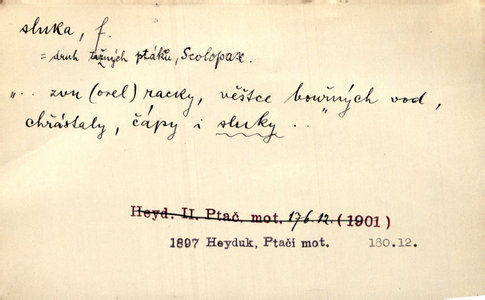 sluka, f.
= druh tažných ptáků, Scolopax.
„.. zvu (orel) racky, věštce bouřných vod,
chřástaly, čápy i sluky .."
Heyd. II. Ptač. mot. 176.12. (1901)
1897 Heyduk, Ptačí mot. 180.12.